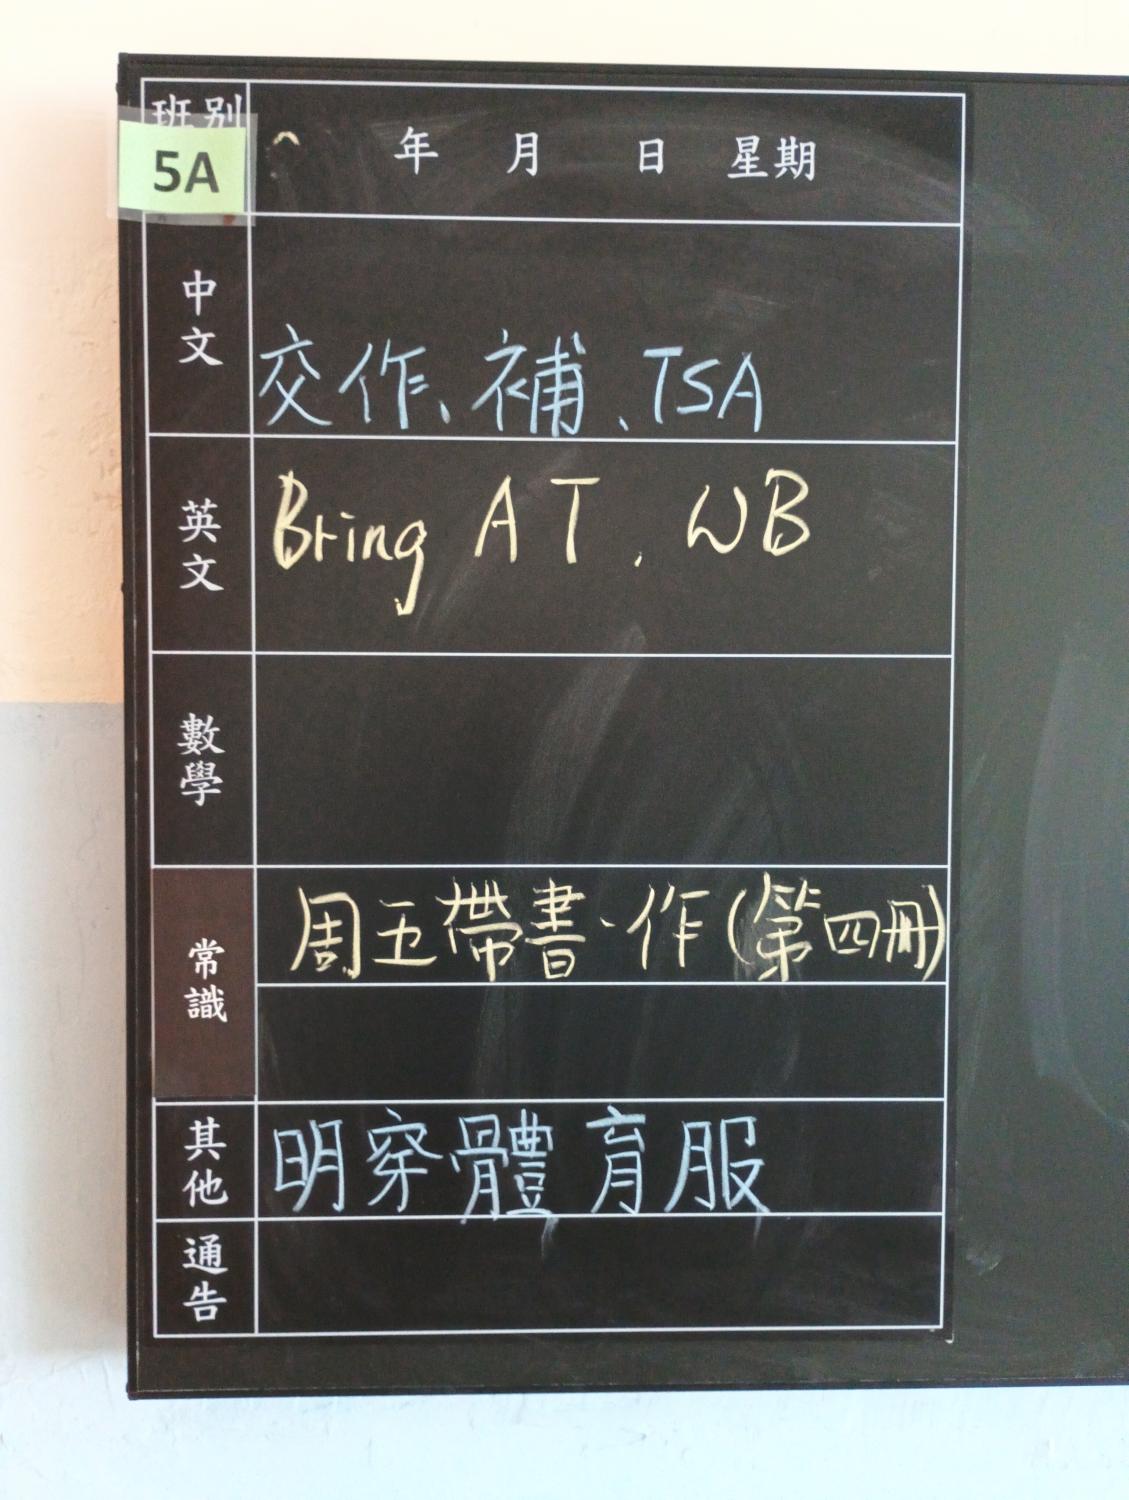 班別 年 月 日 星期
5A
中文 交作、補、TSA
英文 Bring AT, WB
數學
常識 周五帶書、作(第四冊)
其他 明穿體育服
通告